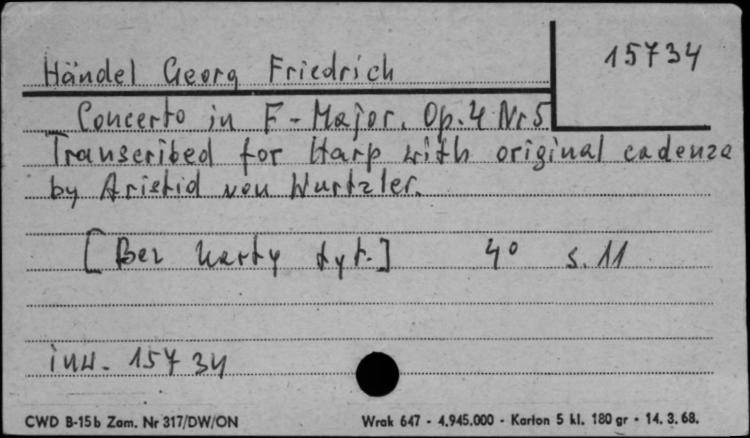 15734
Händel Georg Friedrich
Concerto in F-Major. Op.4 Nr 5
Transcribed for Harp with original cadenza
by Aristid von Wurtzler.
[Bez karty tyt.] 4° s. 11
inw. 15734
CWD B-15b Zam. Nr 317/DW/ON
Wrak 647 - 4.945.000 - Karton 5 kl. 180 gr - 14. 3. 68.